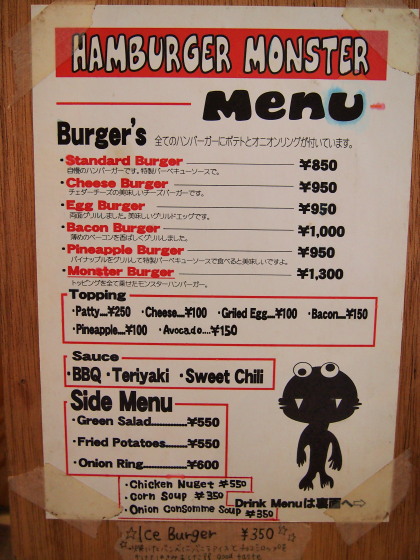 HAMBURGER MONSTER
Menu
Burger's 全てのハンバーガーにポテトとオニオンリングが付いています。
・Standard Burger ¥850
自慢のハンバーガーです。特製バーベキューソースで。
・Cheese Burger ¥950
チェダーチーズの美味しいチーズバーガーです。
・Egg Burger ¥950
両面グリルしました。美味しいグリルドエッグです。
・Bacon Burger ¥1,000
薄めのベーコンを香ばしくグリルしました。
・Pineapple Burger ¥950
パイナップルをグリルして特製バーベキューソースで食べると美味しいですよ。
・Monster Burger ¥1,300
トッピングを全て乗せたモンスターハンバーガー。
Topping
・Patty....¥250 ・Cheese....¥100 ・Griled Egg....¥100 ・Bacon....¥150
・Pineapple....¥100 ・Avocado....¥150
Sauce
・BBQ ・Teriyaki ・Sweet Chili
Side Menu
・Green Salad............¥550
・Fried Potatoes.........¥550
・Onion Ring..............¥600
・Chicken Nuget ¥550
・Corn Soup ¥350
・Onion Consomme Soup ¥350
Drink Menuは裏面へ⇨
☆Ice Burger ¥350☆